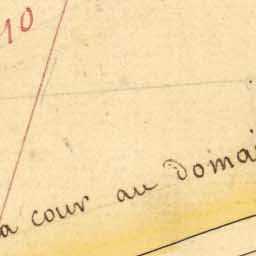 10
a cour au domai